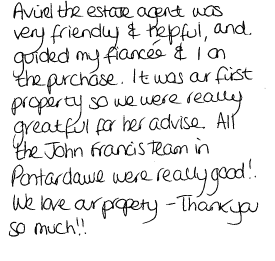 Avirel the estate agent was
very friendly & helpful, and
guided my fiancée & I on
the purchase. It was our first
property so we were really
greatful for her advise. All
the John Francis Team in
Pontardawe were really good!.
We love our propety - Thank you
so much!!